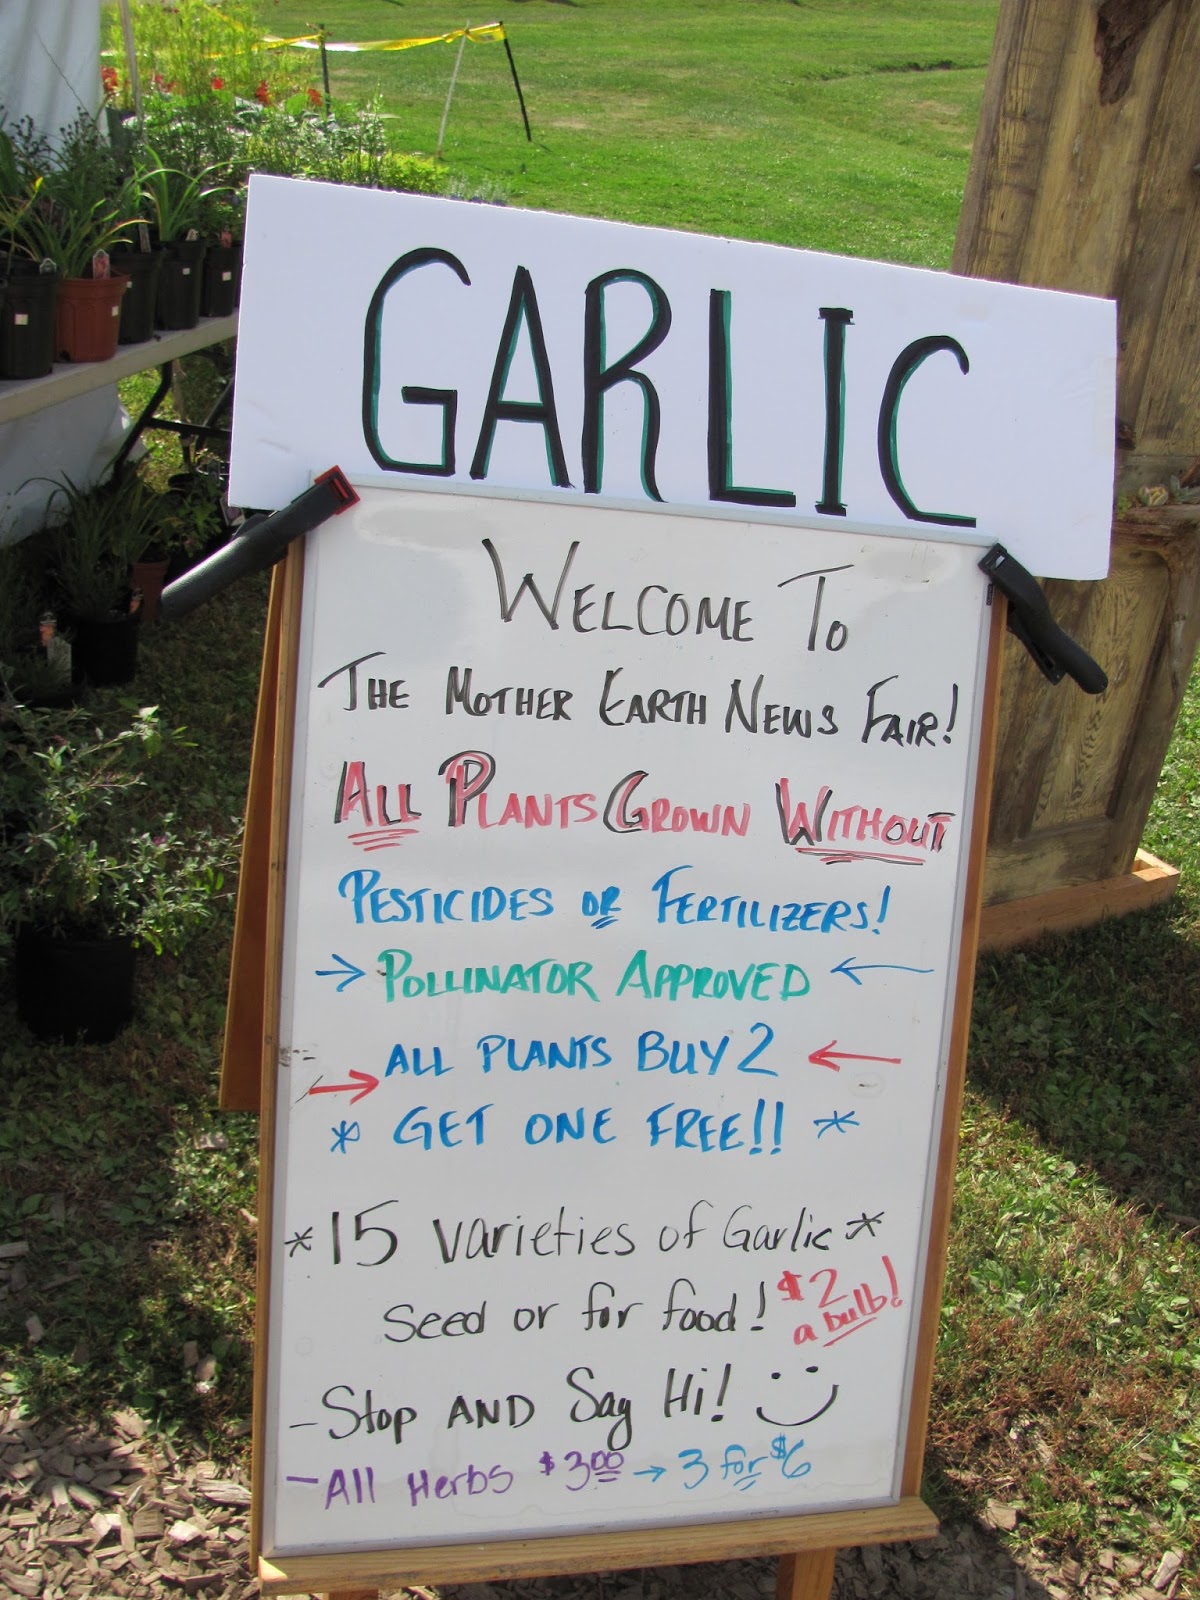 GARLIC
WELCOME TO
THE MOTHER EARTH NEWS FAIR!
ALL PLANTS GROWN WITHOUT
PESTICIDES OR FERTILIZERS!
→ POLLINATOR APPROVED ←
→ ALL PLANTS BUY 2 ←
* GET ONE FREE!! *
*15 varieties of Garlic*
seed or for food! $2
a bulb!
- Stop AND Say Hi!
- All Herbs $3.00 → 3 for $6